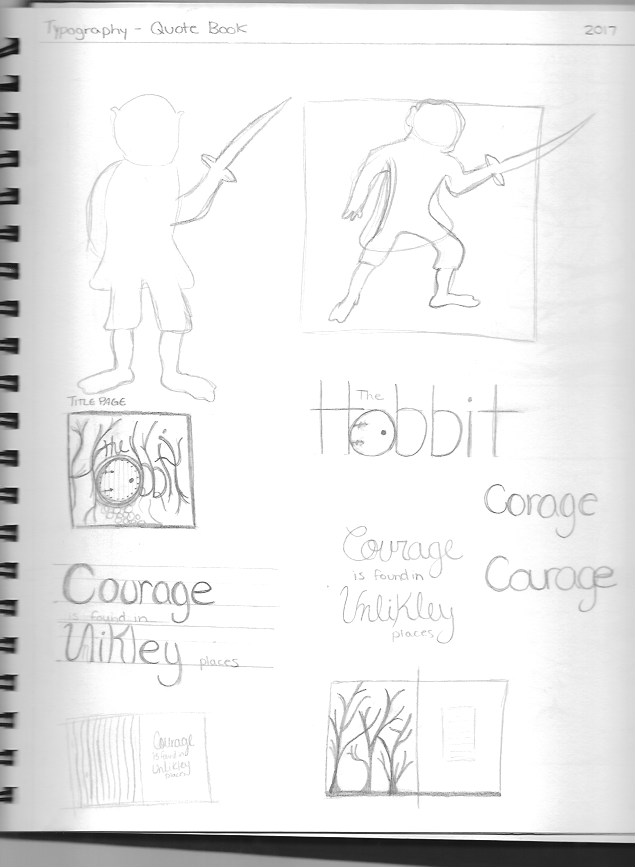 Typography - Quote Book 2017
TITLE PAGE
The
Hobbit
the
Hobbit
Corage
Courage
is found in
Unlikley
places
Courage
Courage
is found in
places
Courage
is found in
Unlikley
places